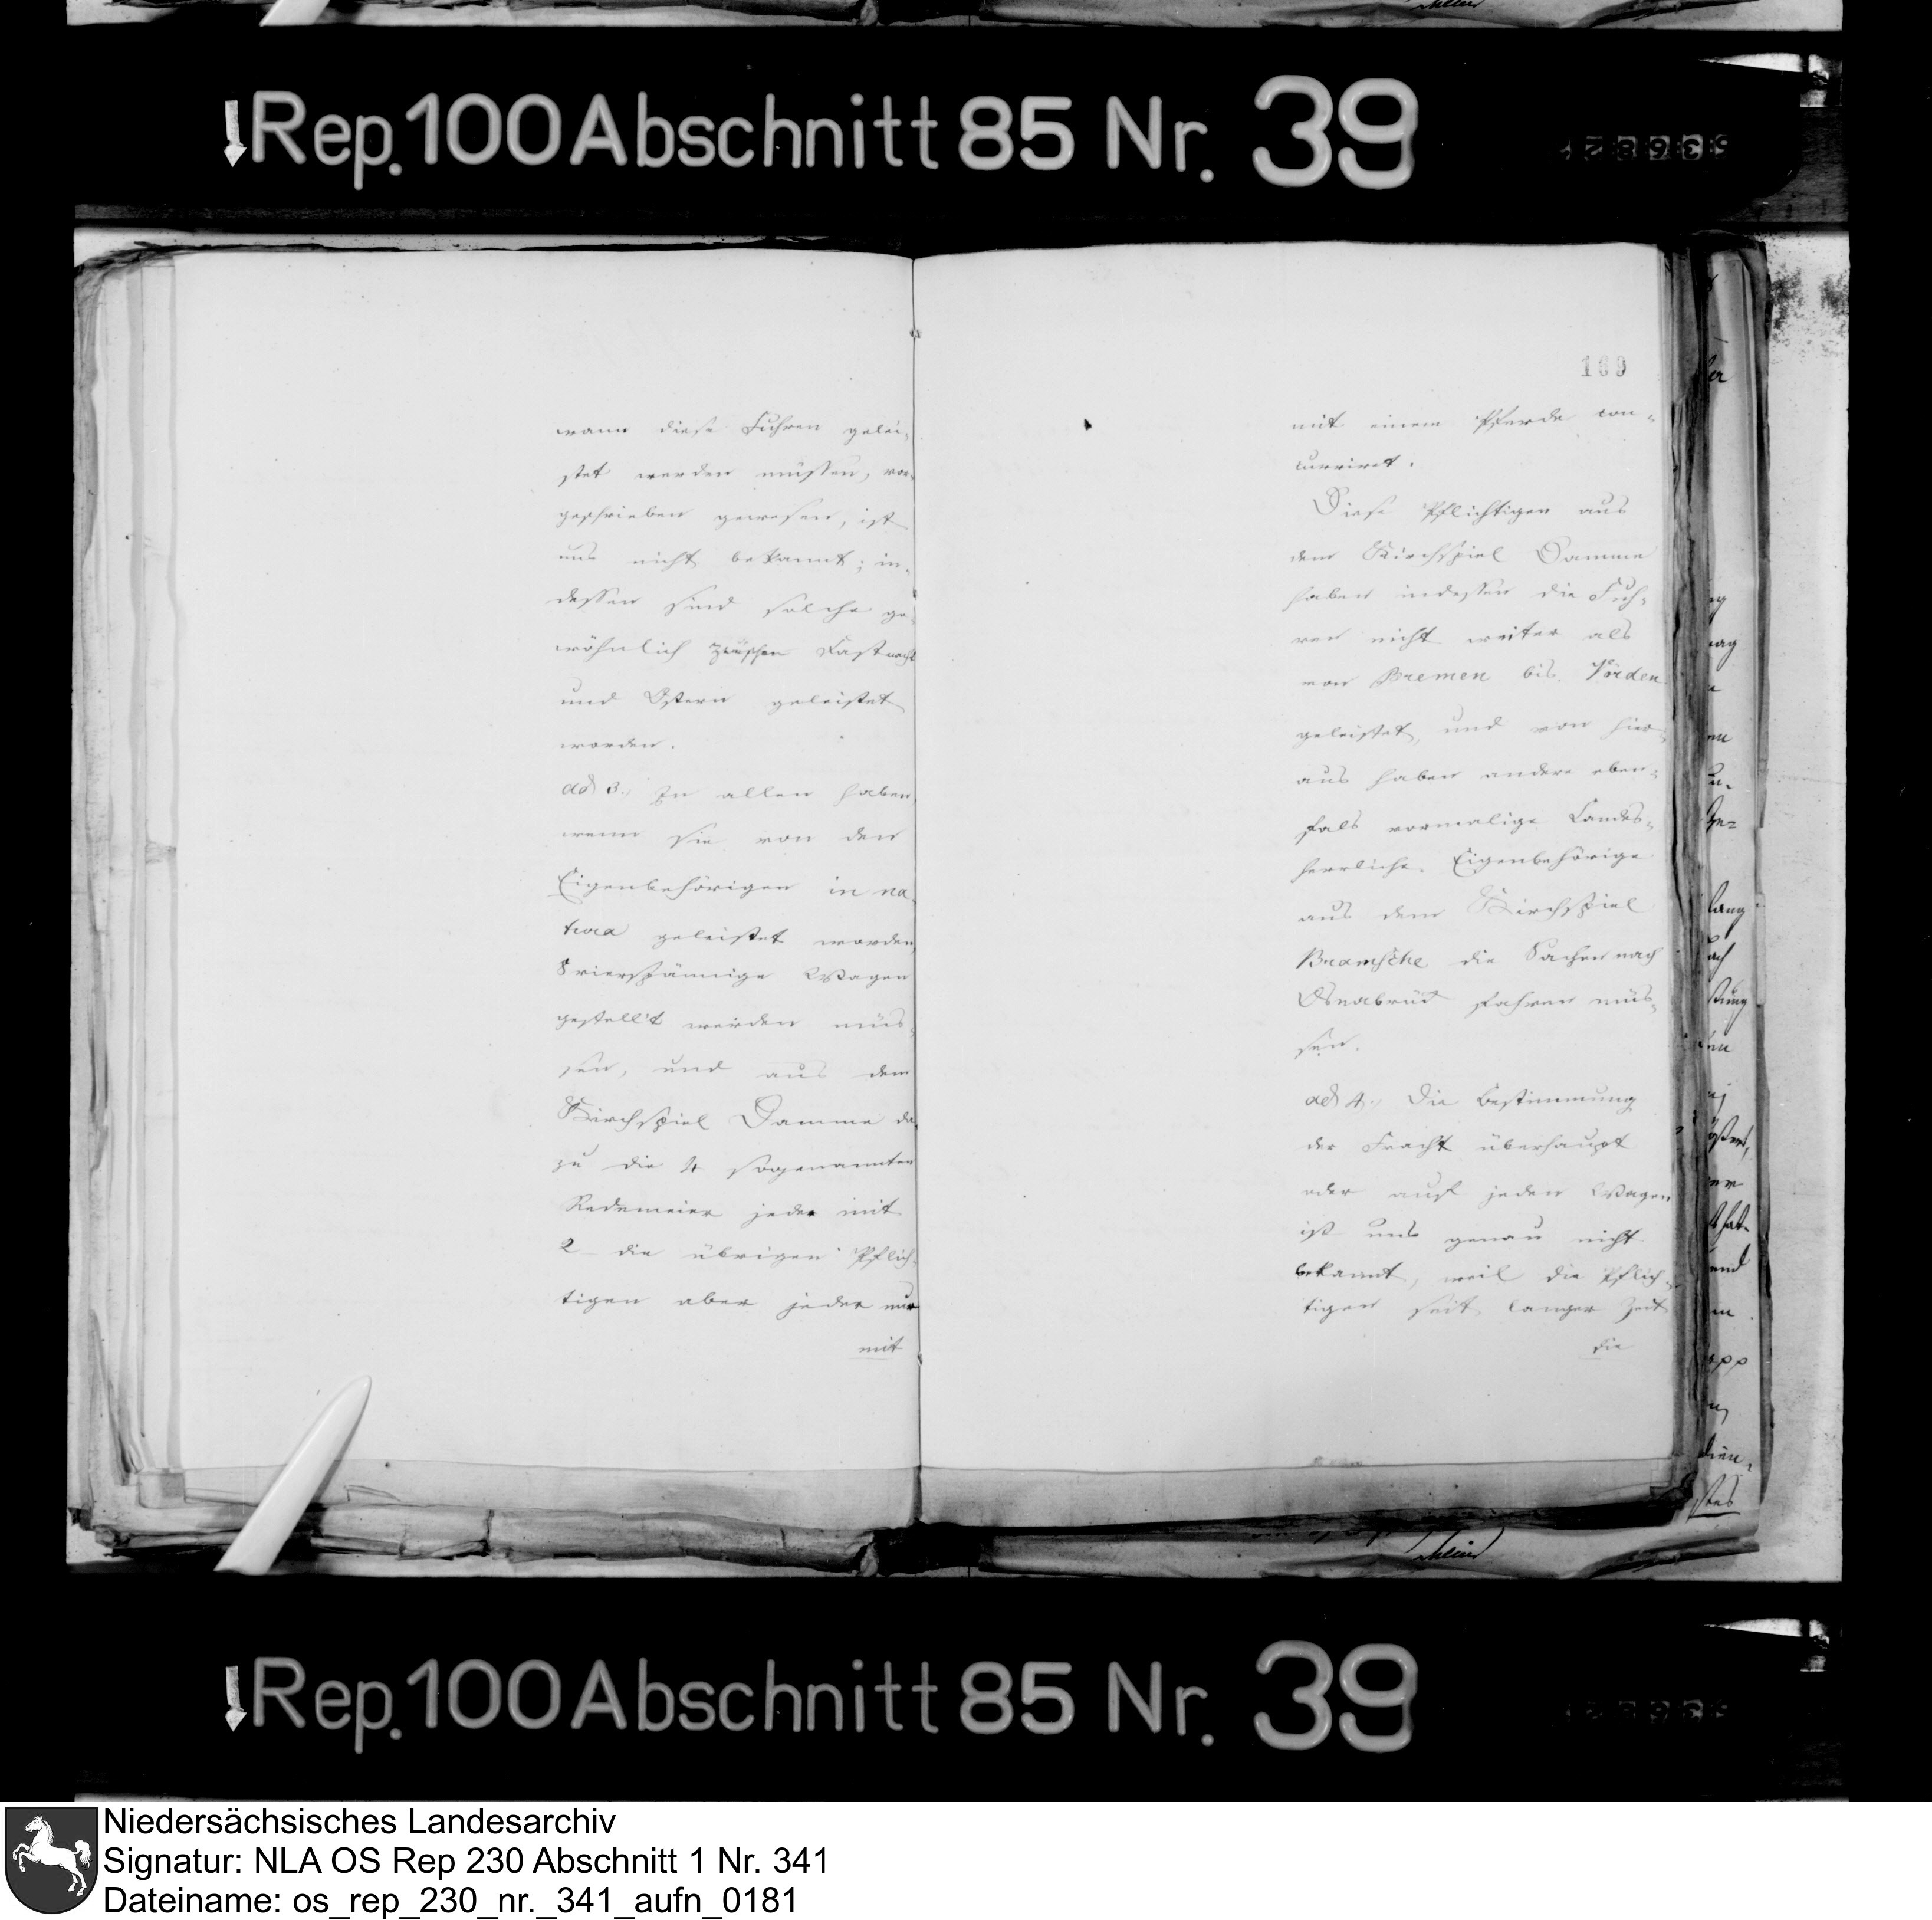 Rep. 100 Abschnitt 85 Nr. 39
wann diese Fuhren gelei-
stet werden müssen, vor-
geschrieben gewesen, ist
uns nicht bekannt; in-
dessen sind solche ge-
wöhnlich zwischen Fastnacht
und Ostern geleistet
worden.
ad 3., In allen haben,
wenn sie von den
Eigenbehörigen in na-
tura geleistet worden,
8 vierspännige Wagen
gestellt werden müs-
sen, und aus dem
Kirchspiel Damme da-
zu die 4 sogenannten
Redemeier jeder mit
2 die übrigen Pflich-
tigen aber jeder nur
mit
169
mit einem Pferde con-
curriret.
Diese Pflichtigen aus
dem Kirchspiel Damme
haben indessen die Fuh-
ren nicht weiter als
von Bremen bis Vörden
geleistet, und von hier
aus haben andere eben-
fals vormalige Landes-
herrliche Eigenbehörige
aus dem Kirchspiel
Bramsche die Sachen nach
Osnabrück fahren müs-
sen.
ad 4., Die Bestimmung
der Fracht überhaupt
oder auf jeden Wagen
ist uns genau nicht
bekannt, weil die Pflich-
tigen seit langer Zeit
die
Rep. 100 Abschnitt 85 Nr. 39
Niedersächsisches Landesarchiv
Signatur: NLA OS Rep 230 Abschnitt 1 Nr. 341
Dateiname: os_rep_230_nr._341_aufn_0181